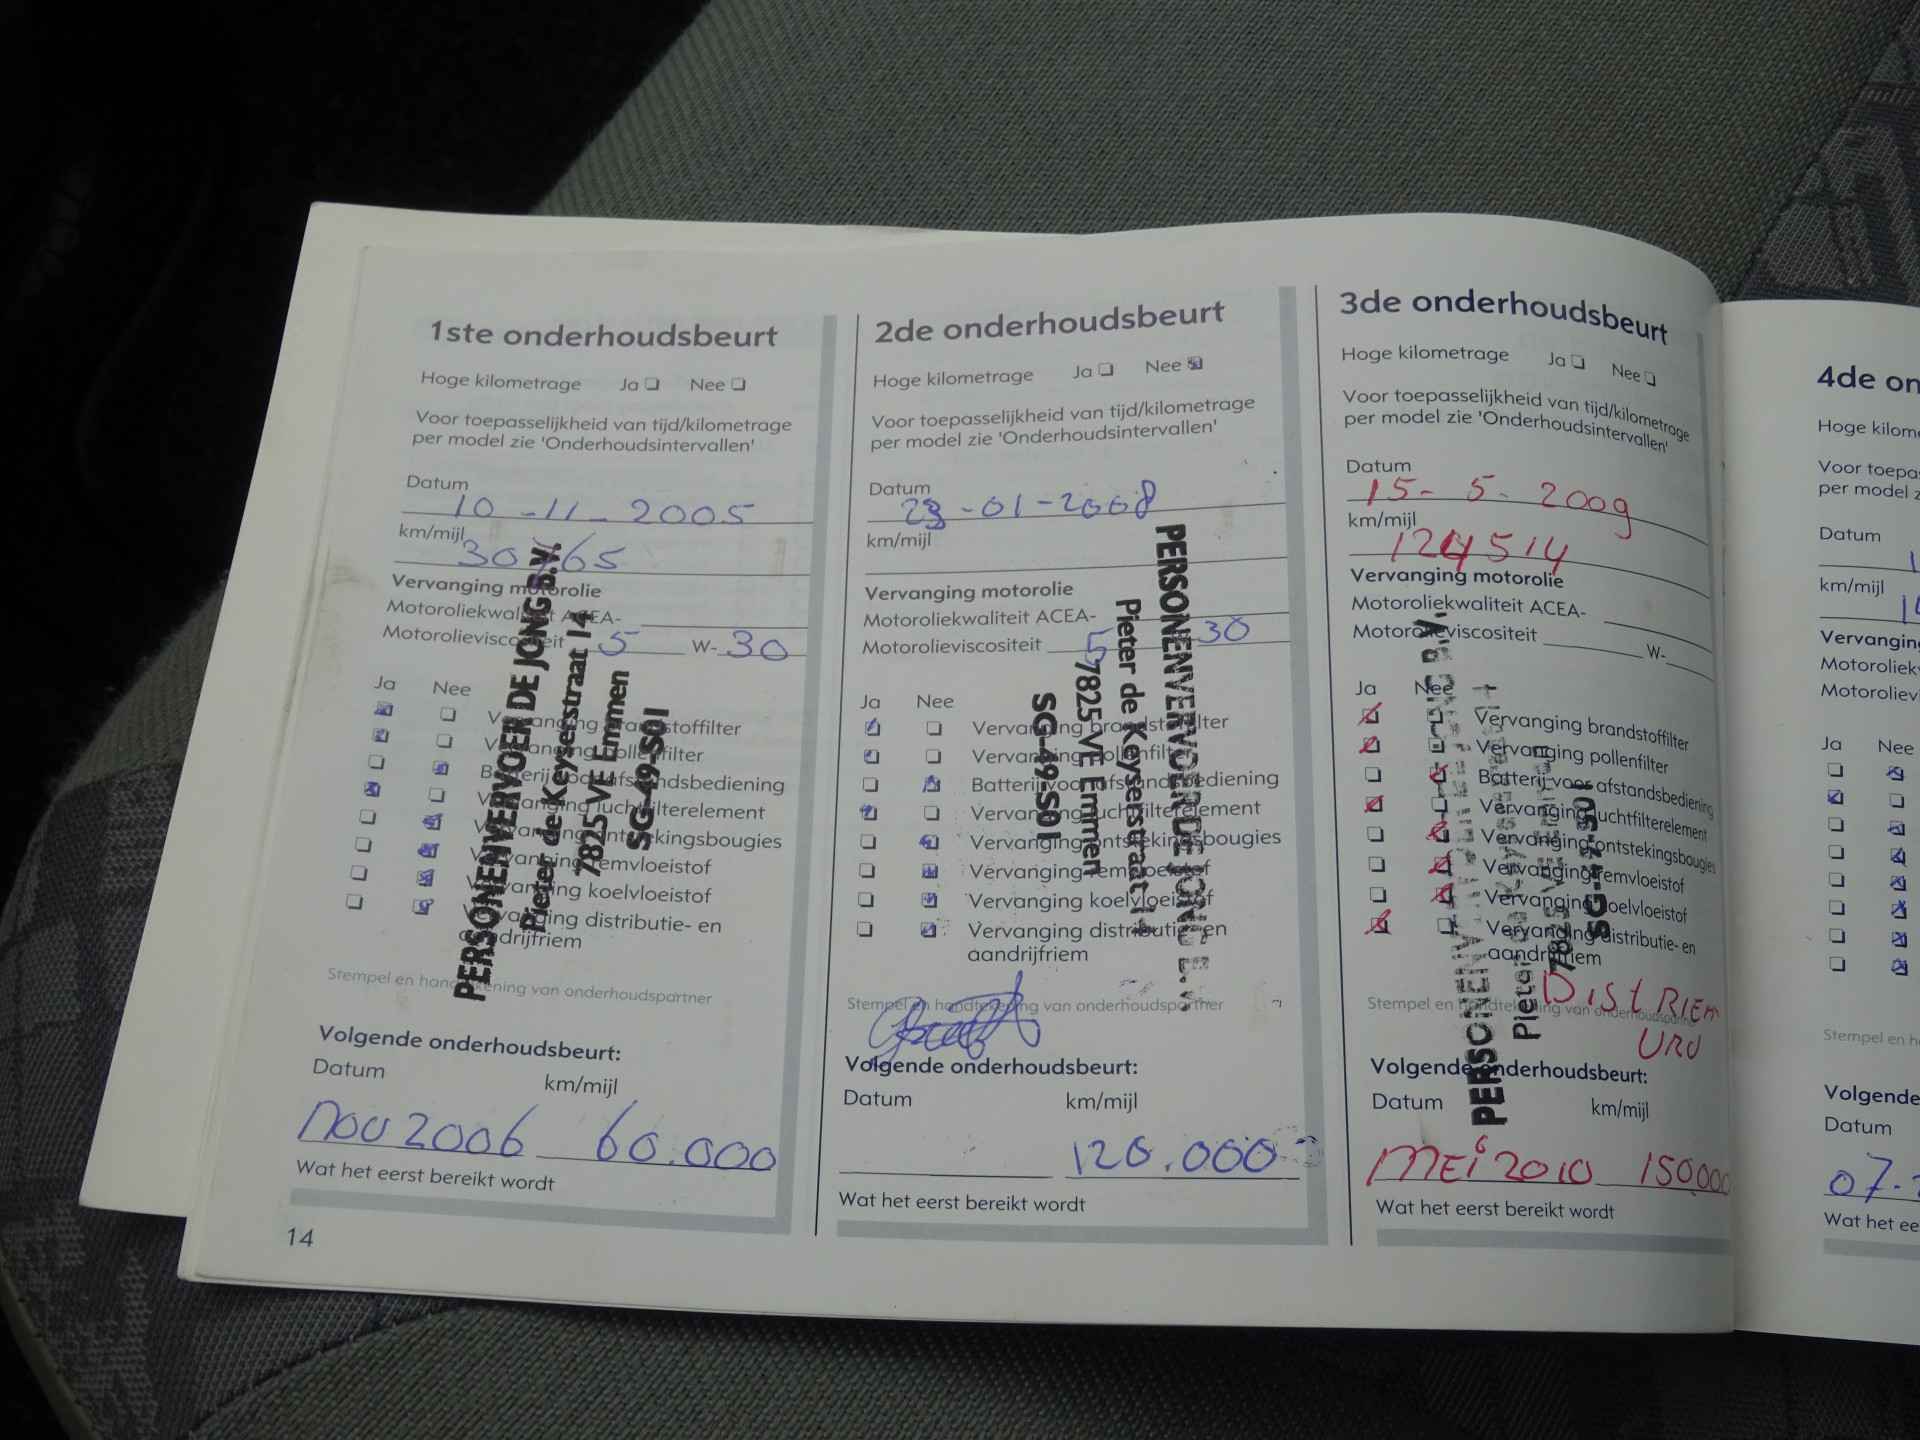 1ste onderhoudsbeurt
Hoge kilometrage Ja Nee
Voor toepasselijkheid van tijd/kilometrage
per model zie 'Onderhoudsintervallen'
Datum
10-11-2005
km/mijl
30765
Vervanging motorolie
Motoroliekwaliteit ACEA-
Motorolieviscositeit 5 W-30
Ja Nee
Vervanging brandstoffilter
Vervanging pollenfilter
Batterij voor afstandsbediening
Vervanging luchtfilterelement
Vervanging ontstekingsbougies
Vervanging remvloeistof
Vervanging koelvloeistof
Vervanging distributie- en
aandrijfriem
PERSONENVERVOER DE JONG B.V.
Pieter de Keyserstraat 14
7825 VE Emmen
SG-49-S01
Stempel en handtekening van onderhoudspartner
Volgende onderhoudsbeurt:
Datum km/mijl
nov 2006 60.000
Wat het eerst bereikt wordt
14
2de onderhoudsbeurt
Hoge kilometrage Ja Nee
Voor toepasselijkheid van tijd/kilometrage
per model zie 'Onderhoudsintervallen'
Datum
23-01-2008
km/mijl
Vervanging motorolie
Motoroliekwaliteit ACEA-
Motorolieviscositeit 5 30
Ja Nee
Vervanging brandstoffilter
Vervanging pollenfilter
Batterij voor afstandsbediening
Vervanging luchtfilterelement
Vervanging ontstekingsbougies
Vervanging remvloeistof
Vervanging koelvloeistof
Vervanging distributie- en
aandrijfriem
PERSONENVERVOER DE JONG B.V.
Pieter de Keyserstraat 14
7825 VE Emmen
SG-49-S01
Stempel en handtekening van onderhoudspartner
Volgende onderhoudsbeurt:
Datum km/mijl
120.000
Wat het eerst bereikt wordt
3de onderhoudsbeurt
Hoge kilometrage Ja Nee
Voor toepasselijkheid van tijd/kilometrage
per model zie 'Onderhoudsintervallen'
Datum
15-5-2009
km/mijl
124514
Vervanging motorolie
Motoroliekwaliteit ACEA-
Motorolieviscositeit W-
Ja Nee
Vervanging brandstoffilter
Vervanging pollenfilter
Batterij voor afstandsbediening
Vervanging luchtfilterelement
Vervanging ontstekingsbougies
Vervanging remvloeistof
Vervanging koelvloeistof
Vervanging distributie- en
aandrijfriem
DISTRIEM
Stempel en handtekening van onderhoudspartner
Volgende onderhoudsbeurt:
Datum km/mijl
MEI 2010 150000
Wat het eerst bereikt wordt
4de on
Hoge kilome
Voor toepa
per model z
Datum
km/mijl
Vervanging
Motoroliek
Motoroliev
Ja Nee
Stempel en h
Volgende
Datum
07-
Wat het ee